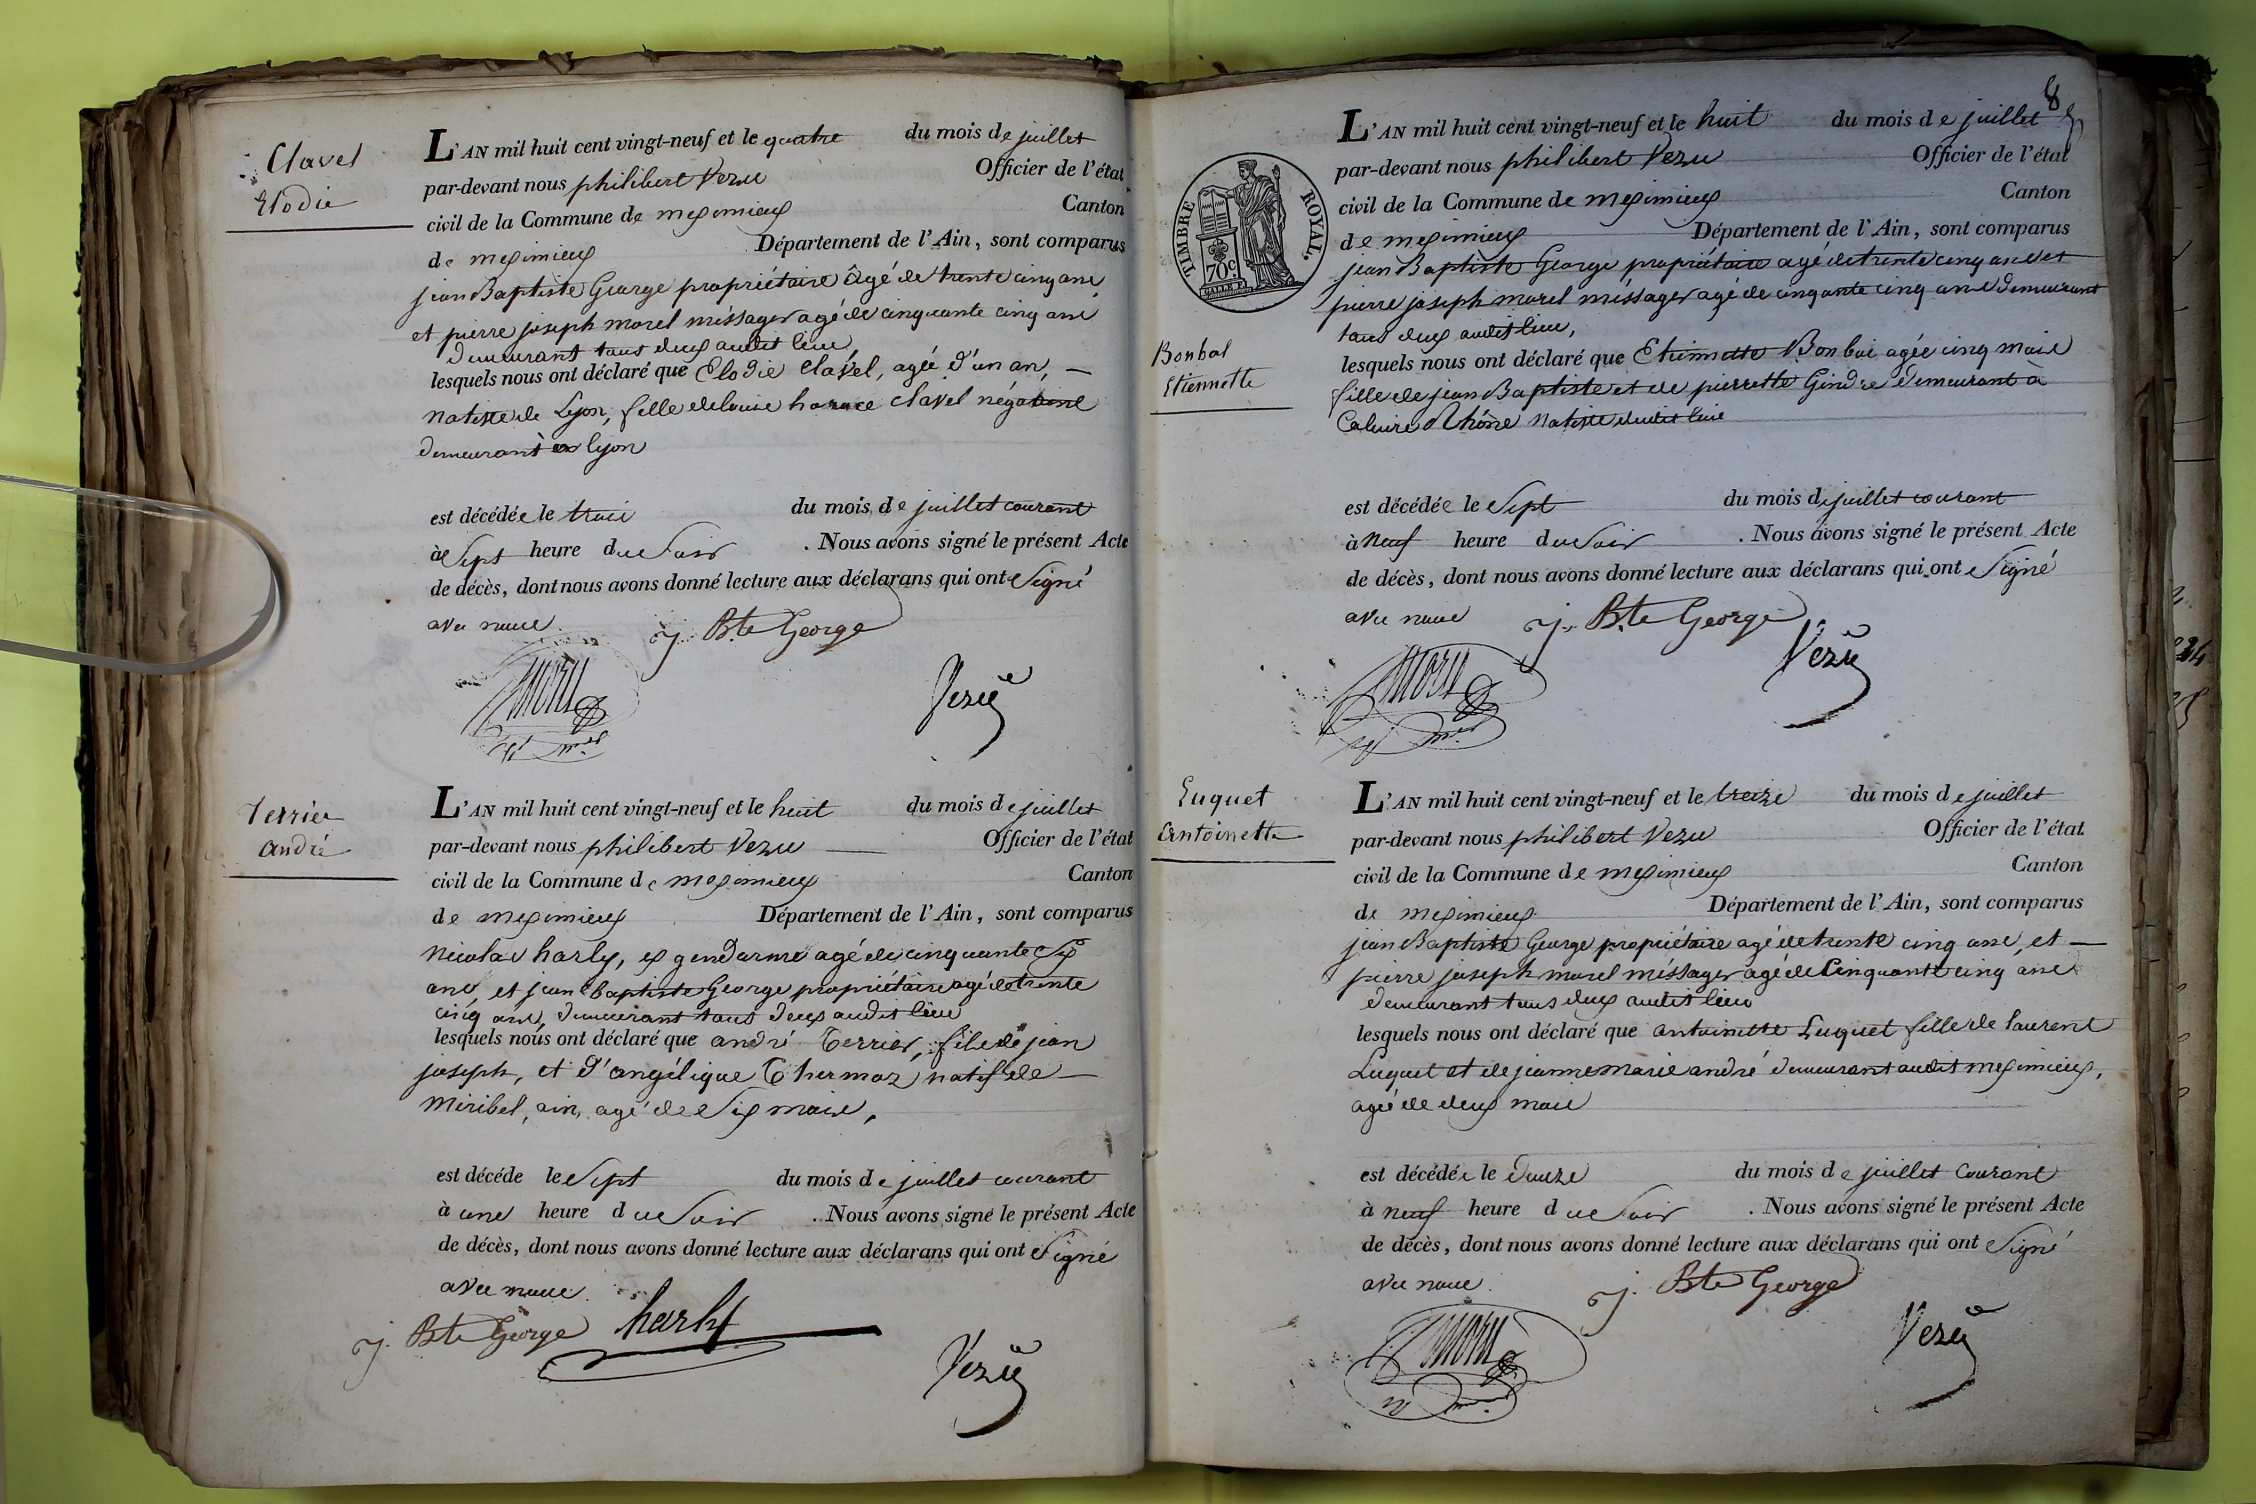 Clavel
Elodie
L'AN mil huit cent vingt-neuf et le quatre du mois de juillet
par-devant nous philibert Vezu Officier de l'état
civil de la Commune de meximieux Canton
de meximieux Département de l'Ain, sont comparus
jean Baptiste George propriétaire âgé de trente cinq ans
et pierre joseph morel méssager agé de cinquante cinq ans
demeurant tous deux audit lieu,
lesquels nous ont déclaré que Elodie Clavel, agée d'un an,
native de Lyon, fille de louis horace Clavel négotiant
demeurant à lyon
est décédée le trois du mois de juillet courant
à Sept heure du Soir . Nous avons signé le présent Acte
de décès, dont nous avons donné lecture aux déclarans qui ont Signé
avec nous
j. Bte George
Morel
Vezu
Terrier
André
L'AN mil huit cent vingt-neuf et le huit du mois de juillet
par-devant nous philibert Vezu Officier de l'état
civil de la Commune de meximieux Canton
de meximieux Département de l'Ain, sont comparus
Nicolas harly, ex gendarme agé de cinquante Six
ans, et jean baptiste George propriétaire agé de trente
cinq ans, demeurant tous deux audit lieu
lesquels nous ont déclaré que andré Terrier, fils de jean
joseph, et d'angélique Thermoz natif de
Miribel, ain, agé de Six mois,
est décéde le Sept du mois de juillet courant
à une heure du Soir . Nous avons signé le présent Acte
de décès, dont nous avons donné lecture aux déclarans qui ont Signé
avec nous.
j. Bte George harly
Vezu
TIMBRE ROYAL
70c.
L'AN mil huit cent vingt-neuf et le huit du mois de juillet
par-devant nous philibert Vezu Officier de l'état
civil de la Commune de meximieux Canton
de meximieux Département de l'Ain, sont comparus
jean Baptiste George propriétaire agé de trente cinq ans et
pierre joseph morel méssager agé de cinquante cinq ans demeurant
tous deux audit lieu,
Bonbal
Etiennette
lesquels nous ont déclaré que Etiennette Bonbal agée cinq mois
fille de jean Baptiste et de pierrette Gindre demeurant à
Caluire Rhône Native dudit lieu
est décédée le Sept du mois de juillet courant
à Neuf heure du Soir . Nous avons signé le présent Acte
de décès, dont nous avons donné lecture aux déclarans qui ont Signé
avec nous
j. Bte George
Morel
Vezu
Luquet
Antoinette
L'AN mil huit cent vingt-neuf et le treize du mois de juillet
par-devant nous philibert Vezu Officier de l'état
civil de la Commune de meximieux Canton
de meximieux Département de l'Ain, sont comparus
jean Baptiste George propriétaire agé de trente cinq ans, et
pierre joseph morel méssager agé de Cinquante cinq ans
demeurant tous deux audit lieu
lesquels nous ont déclaré que antoinette Luquet fille de laurent
Luquet et de jeanne marie andré demeurant audit meximieux,
agée de deux mois
est décédée le Douze du mois de juillet Courant
à neuf heure du Soir . Nous avons signé le présent Acte
de décès, dont nous avons donné lecture aux déclarans qui ont Signé
avec nous.
j. Bte George
Morel
Vezu